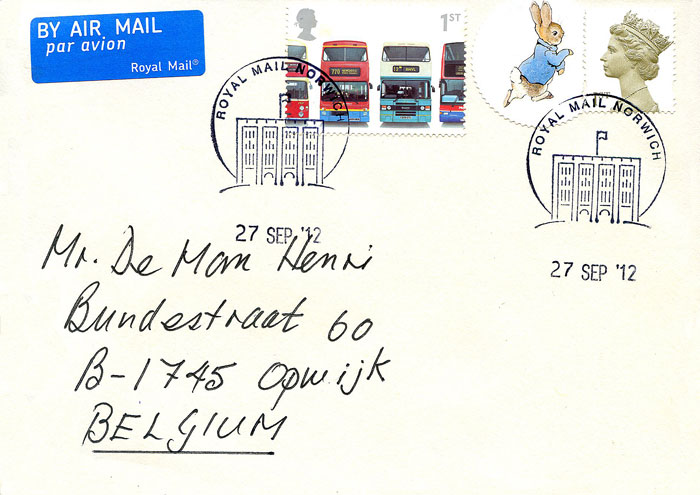 BY AIR MAIL
par avion
Royal Mail®
1ST
ROYAL MAIL NORWICH
27 SEP '12
ROYAL MAIL NORWICH
27 SEP '12
Mr. De Mam Henri
Bundestraat 60
B-1745 Opwijk
BELGIUM